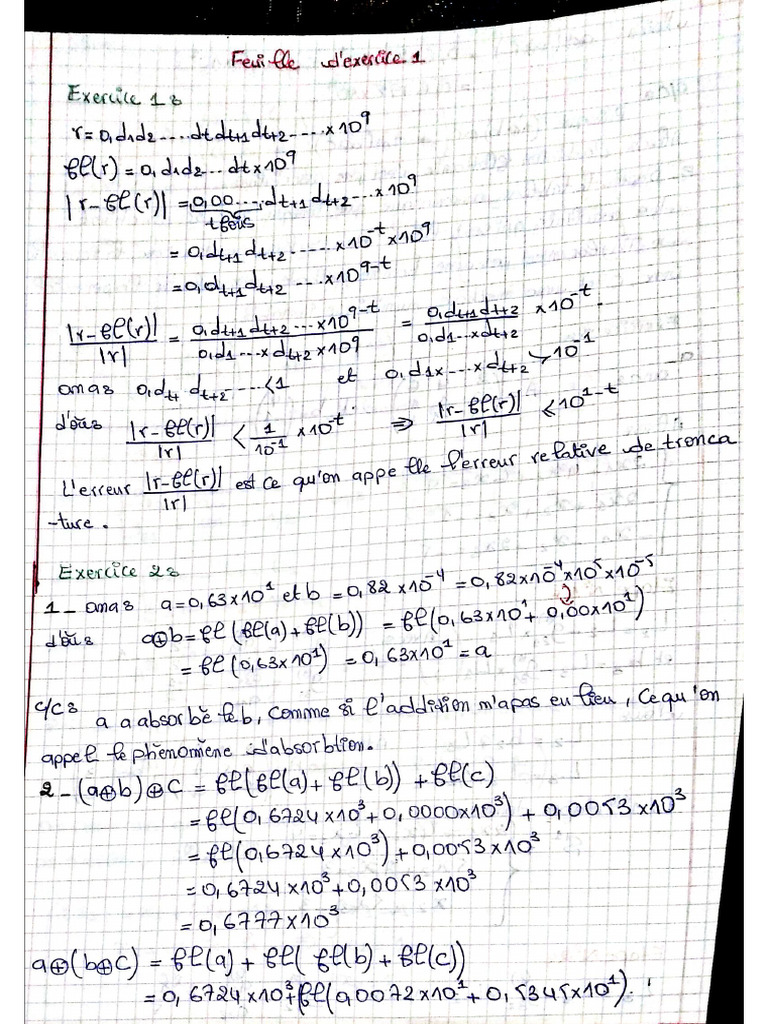 Feuille d'exercice 1
Exercice 1 :
r = 0,d1d2 ....dtdt+1dt+2.....×10^9
fl(r) = 0,d1d2...dt×10^9
|r-fl(r)| = 0,00....dt+1dt+2...×10^9
t fois
= 0,dt+1dt+2......×10^-t×10^9
= 0,dt+1dt+2 ...×10^9-t
|r-fl(r)|/|r| = 0,dt+1dt+2...×10^9-t/0,d1...×dt+2×10^9 = 0,dt+1dt+2/0,d1...×dt+2 ×10^-t.
on as 0,dt+ dt+2-....<1 et 0,d1×....×dt+2 > 10^-1
d'où |r-fl(r)|/|r| < 1/10^-1 ×10^-t. => |r-fl(r)|/|r| ≤ 10^1-t
L'erreur |r-fl(r)|/|r| est ce qu'on appelle l'erreur relative de tronca
-ture.
Exercice 2 :
1 - on as a=0,63×10^1 et b = 0,82×10^-4 = 0,82×10^-4×10^5×10^-5
d'où a⊕b = fl(fl(a)+fl(b)) = fl(0,63×10^1+ 0,00×10^1)
= fl(0,63×10^1) = 0,63×10^1 = a
c/c : a a absorbé le b, comme si l'addition m'apas eu lieu, Ce qu'on
appel le phénomène d'absorbtion.
2 - (a⊕b)⊕c = fl(fl(a)+fl(b)) + fl(c)
= fl(0,6724×10^3+0,0000×10^3) + 0,0053×10^3
= fl(0,6724×10^3)+0,0053×10^3
= 0,6724×10^3+0,0053×10^3
= 0,6777×10^3
a⊕(b⊕c) = fl(a) + fl( fl(b) + fl(c))
= 0,6724×10^3+fl(0,0072×10^1+0,5345×10^1).